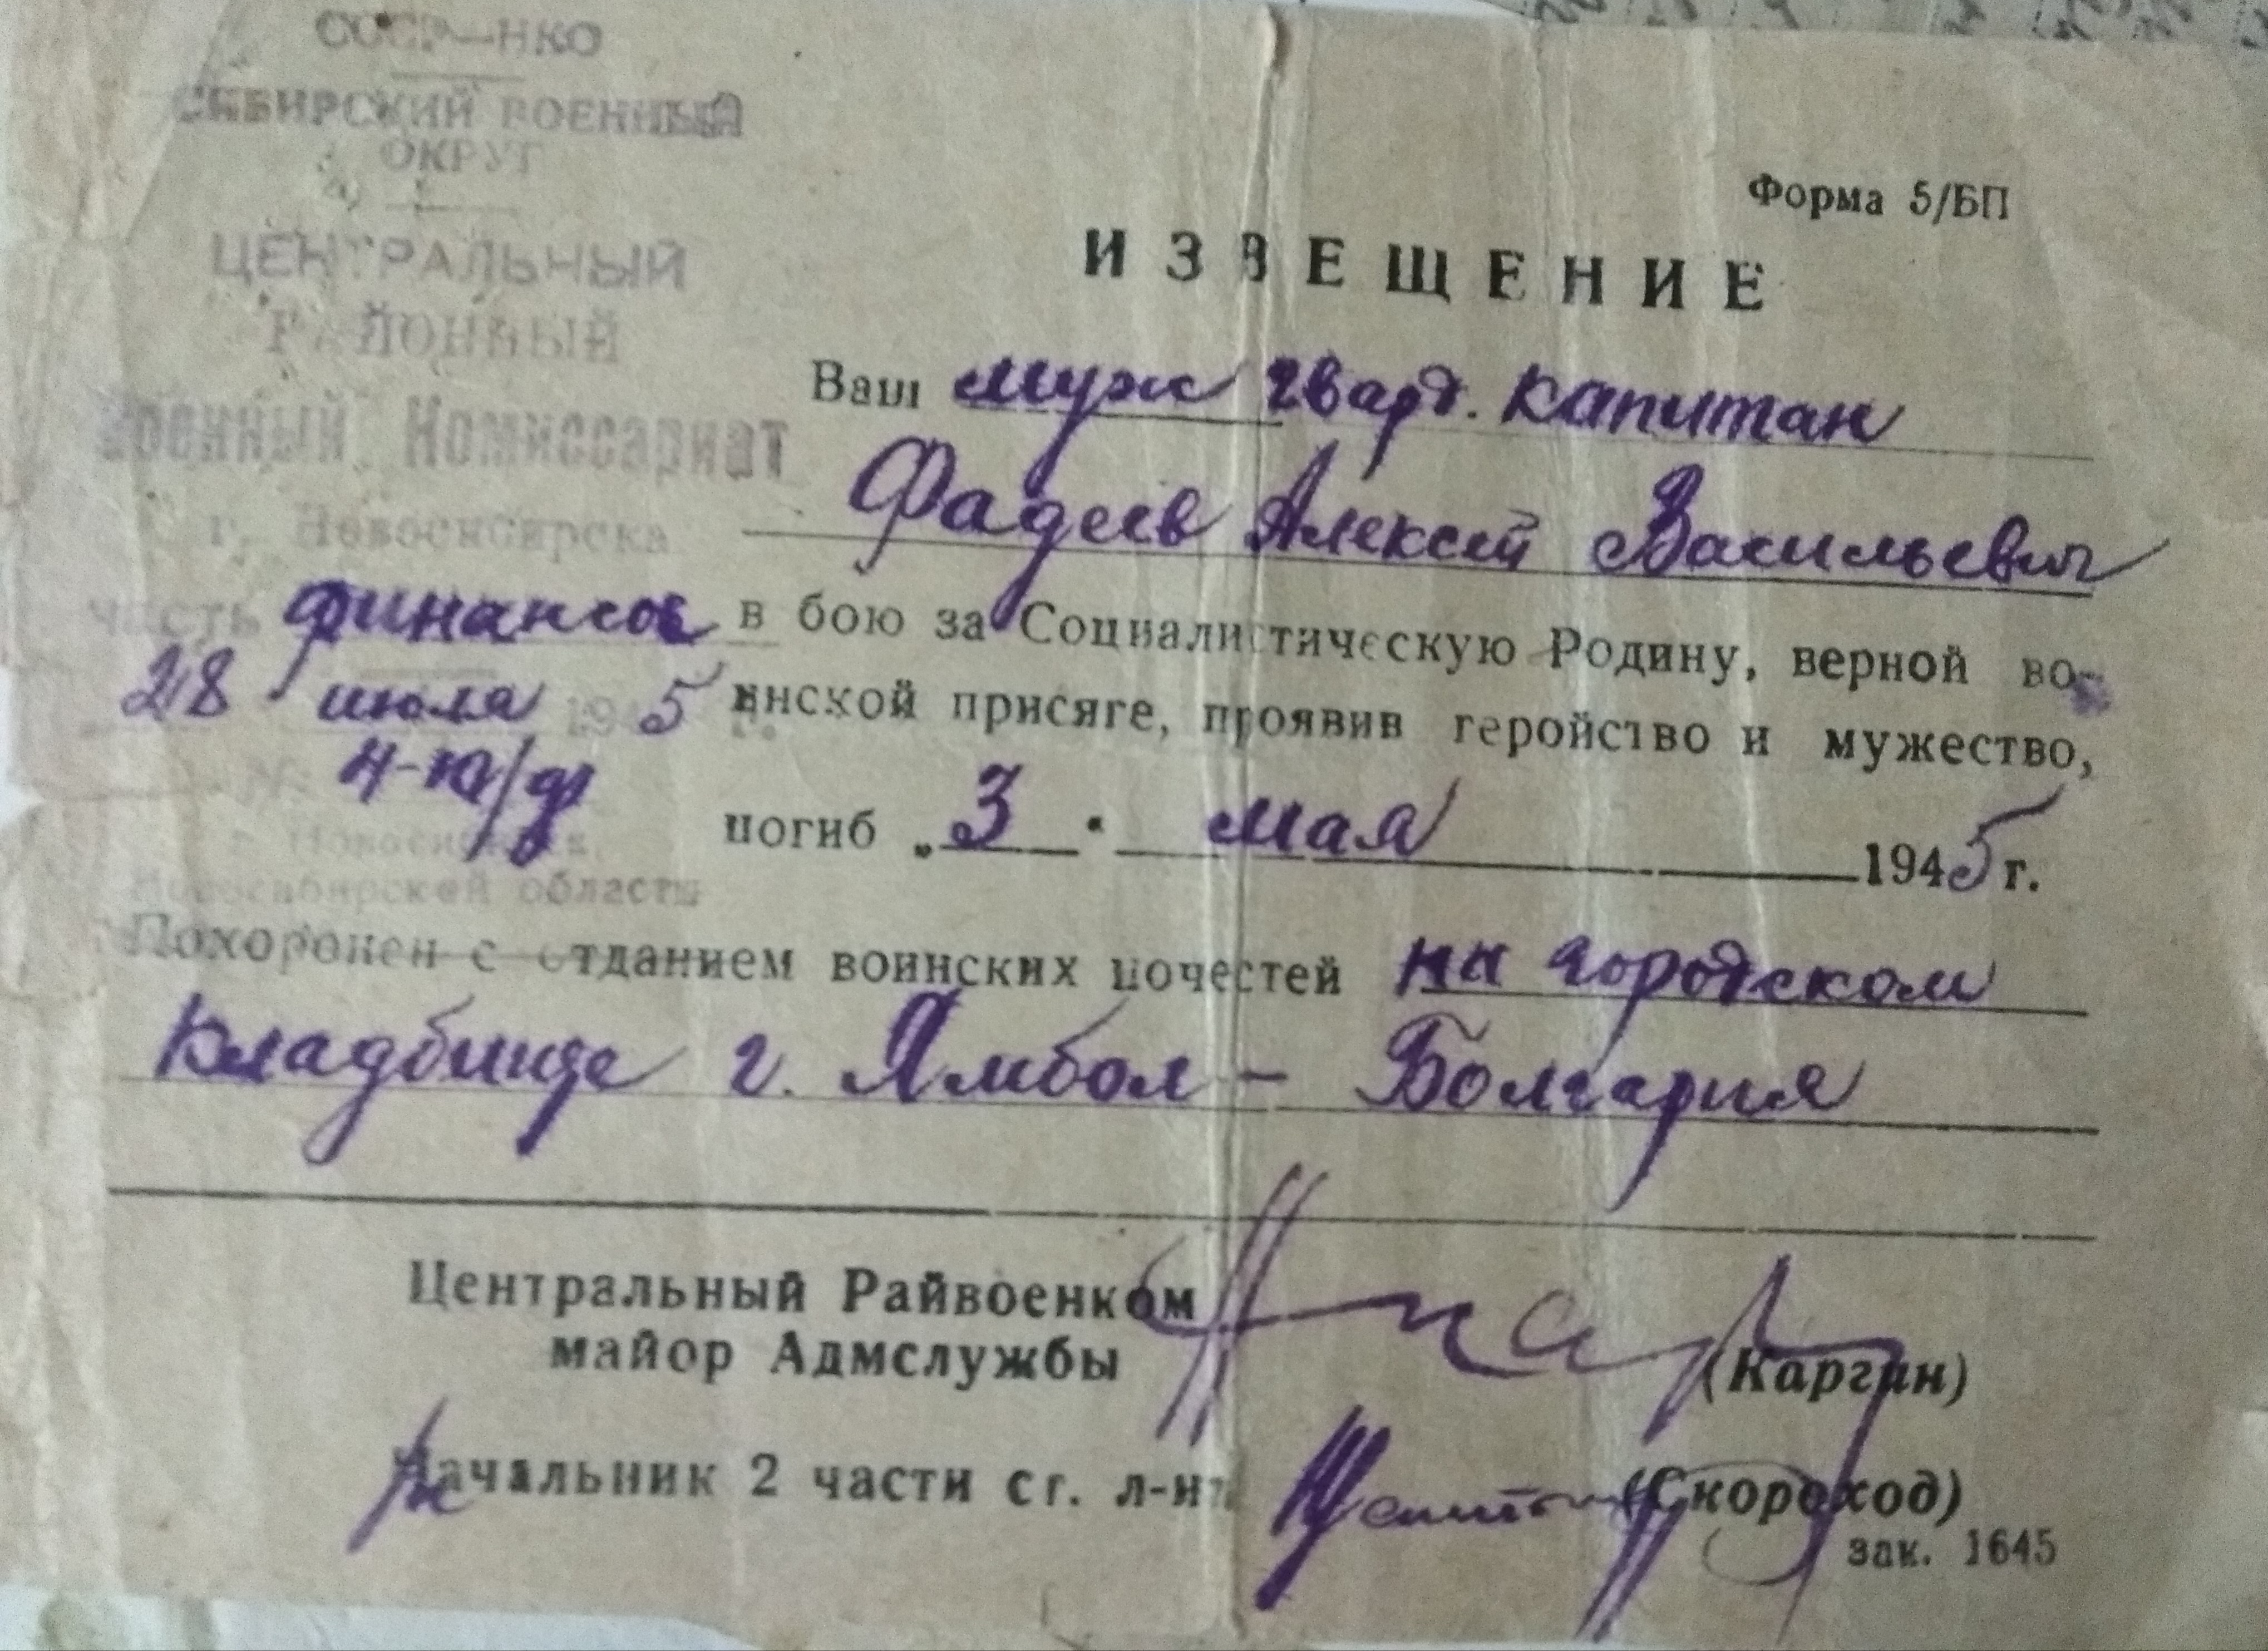 СССР—НКО
СИБИРСКИЙ ВОЕННЫЙ
ОКРУГ
ЦЕНТРАЛЬНЫЙ
РАЙОННЫЙ
Военный Комиссариат
г. Новосибирска
часть финансов
28 июля 1945 г.
№ 4-ю/ф
г. Новосибирск,
Новосибирской области
Форма 5/БП
ИЗВЕЩЕНИЕ
Ваш муж гвард. капитан
Фадеев Алексей Васильевич
в бою за Социалистическую Родину, верной во-
инской присяге, проявив геройство и мужество,
погиб „3" мая 1945 г.
Похоронен с отданием воинских почестей на городском
кладбище г. Ямбол – Болгария
Центральный Райвоенком
майор Адмслужбы (Каргин)
Начальник 2 части ст. л-нт (Скороход)
зак. 1645